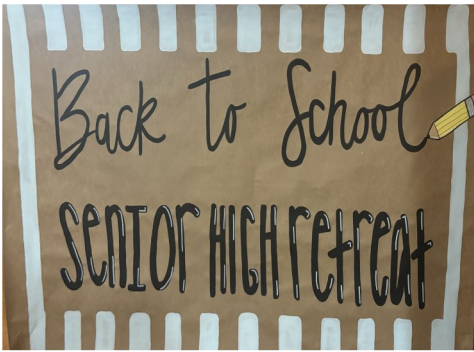 Back to School
SenIOR HIGH retreat